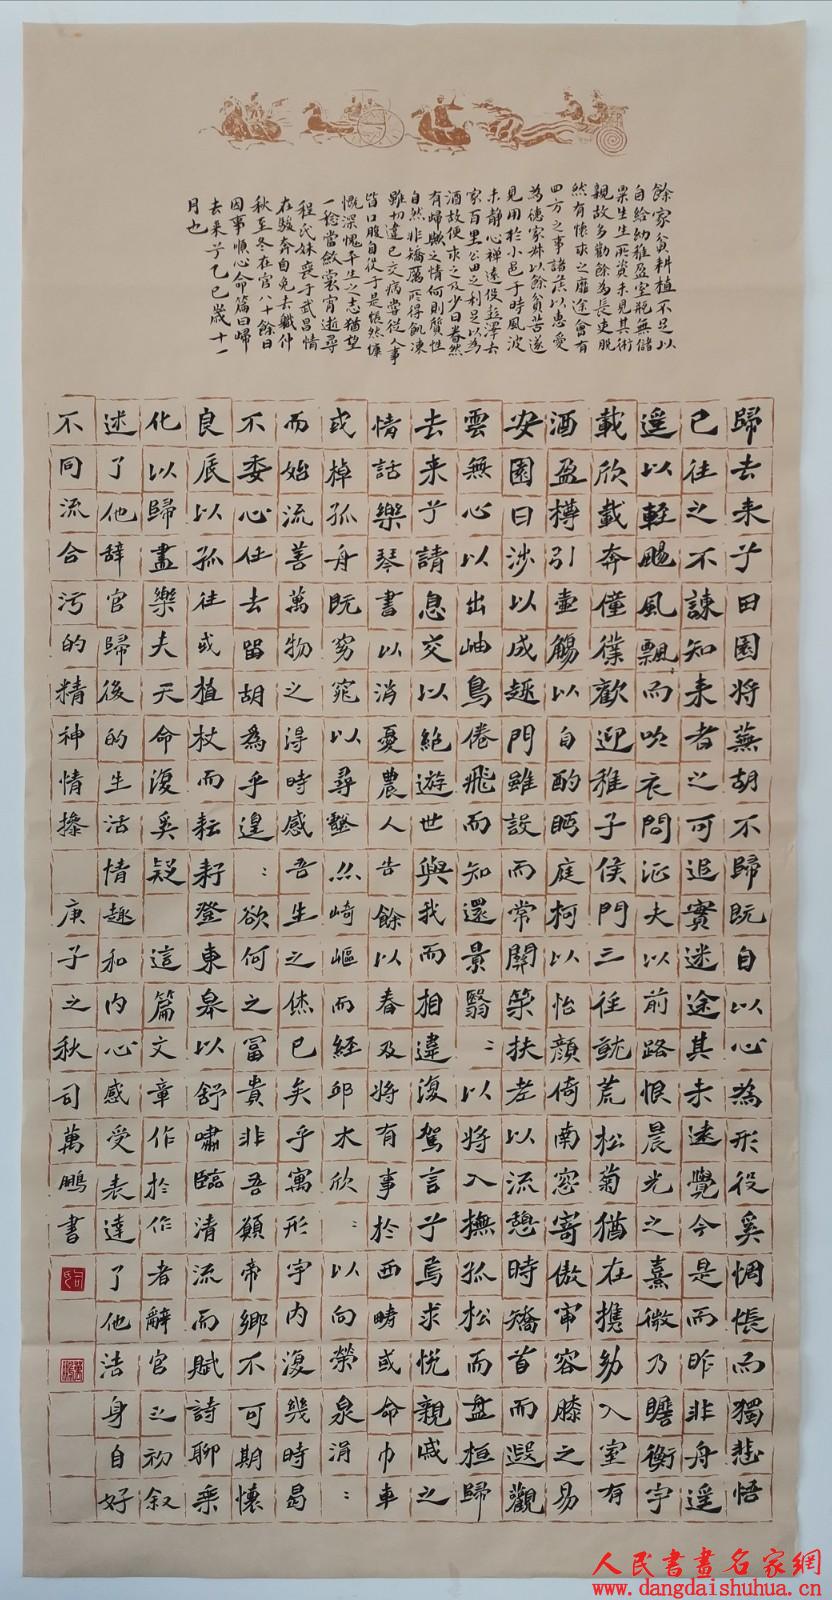 餘家貧耕植不足以
自給幼稚盈室瓶無儲
粟生生所資未見其術
親故多勸餘為長吏脫
然有懷求之靡途會有
四方之事諸侯以惠愛
為德家叔以餘貧苦遂
見用於小邑于時風波
未靜心禅遠役彭澤去
家百里公田之利足以為
酒故便求之及少日眷然
有歸歟之情何則質性
自然非矯厲所得飢凍
雖切違己交病嘗從人事
皆口腹自役于是悵然慷
慨深愧平生之志猶望
一稔當斂裳宵逝尋
程氏妹喪于武昌情
在駿奔自免去職仲
秋至冬在官八十餘日
因事順心命篇曰歸
去来兮乙巳歲十一
月也
歸去来兮田園將蕪胡不歸既自以心為形役奚惆悵而獨悲悟
已往之不諫知来者之可追實迷途其未遠覺今是而昨非舟遥
遥以輕颺風飄而吹衣問征夫以前路恨晨光之熹微乃瞻衡宇
載欣載奔僮僕歡迎稚子侯門三徑就荒松菊猶在携幼入室有
酒盈樽引壷觴以自酌眄庭柯以怡顔倚南窓寄傲审容膝之易
安園日涉以成趣門雖設而常關策扶老以流憩時矯首而遐觀
雲無心以出岫鳥倦飛而知還景翳::以將入撫孤松而盘桓歸
去来兮請息交以絶遊世與我而相違復駕言兮焉求悦親戚之
情話樂琴書以消憂農人告餘以春及將有事於西疇或命巾車
或棹孤舟既窈窕以尋壑亦崎嶇而經邱木欣::以向榮泉涓::
而始流善萬物之得時感吾生之休已矣乎寓形宇内復幾時曷
不委心任去留胡為乎遑::欲何之富貴非吾願帝鄉不可期懷
良辰以孤往或植杖而耘耔登東皋以舒嘯臨清流而賦詩聊乘
化以歸盡樂夫天命復奚疑 這篇文章作於作者辭官之初叙
述了他辞官歸後的生活情趣和内心感受表達了他洁身自好
不同流合污的精神情操 庚子之秋司萬鹏書
人民書畫名家網
www.dangdaishuhua.cn